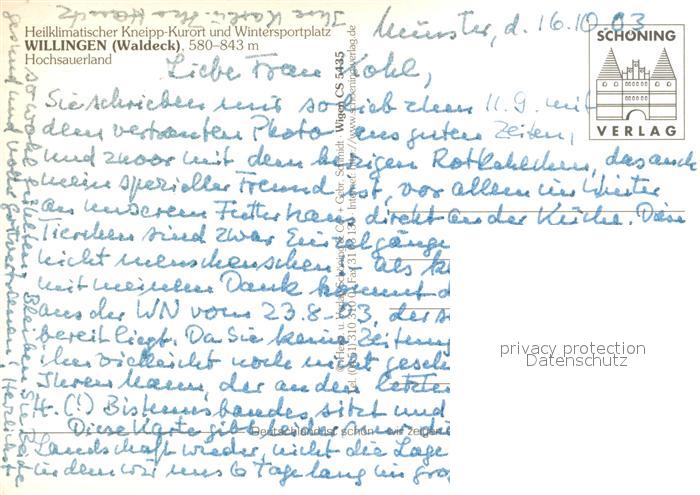 Heilklimatischer Kneipp-Kurort und Wintersportplatz
WILLINGEN (Waldeck), 580–843 m
Hochsauerland
SCHÖNING
VERLAG
Münster, d. 16.10.03
Liebe Frau Kohl,
Sie schrieben mir so lieb zum 11.9. mit
dem vertrauten Photo aus guten Zeiten,
und zwar mit dem herzigen Rotkehlchen, das auch
mein spezieller Freund ist, vor allem im Winter
an unserem Futterhaus direkt an der Küche. Diese
Tierchen sind zwar Einzelgänge
nicht menschenscheu. Als k
mit meinem Dank kommt d
aus der WN vom 23.8.03, der s
bereit liegt. Da Sie keine Zeitung
ihn vielleicht noch nicht geseh
Ihrem Mann, der an dem letzten
H. (!) Bistumsbandes, sitzt und
Diese Karte gibt
Landschaft wieder, nicht die Lage
in dem wir uns 6 Tage lang in gro
so wohl fühlten. Bleiben Sie Beide
gesund und voller Gottvertrauen! Herzlichst
Ihre
Wigen CS 5435
Deutschland ist schön - wir zeigen
privacy protection
Datenschutz